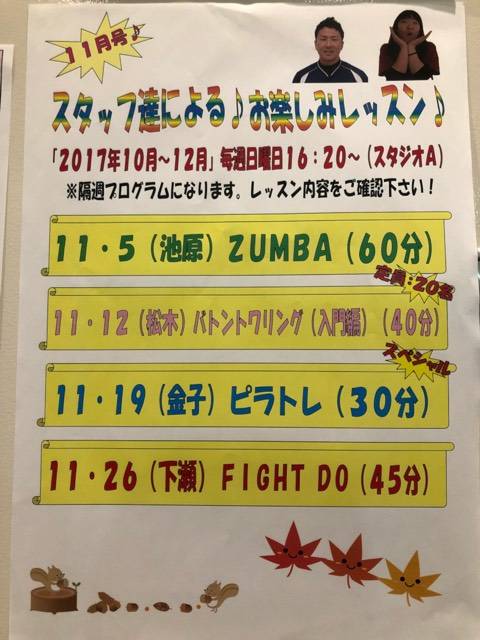 11月号♪
スタッフ達による♪お楽しみレッスン♪
「2017年10月～12月」毎週日曜日16：20～（スタジオA）
※隔週プログラムになります。レッスン内容をご確認下さい！
11・5（池原）ZUMBA（60分）
定員：20名
11・12（松木）バトントワリング（入門編）（40分）
スペシャル
11・19（金子）ピラトレ（30分）
11・26（下瀬）FIGHT DO（45分）